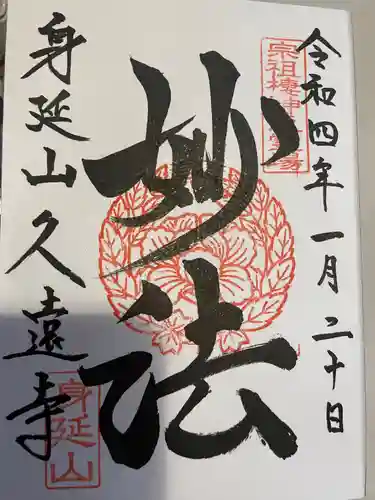 令和四年一月二十日
妙法
身延山久遠寺
身延山